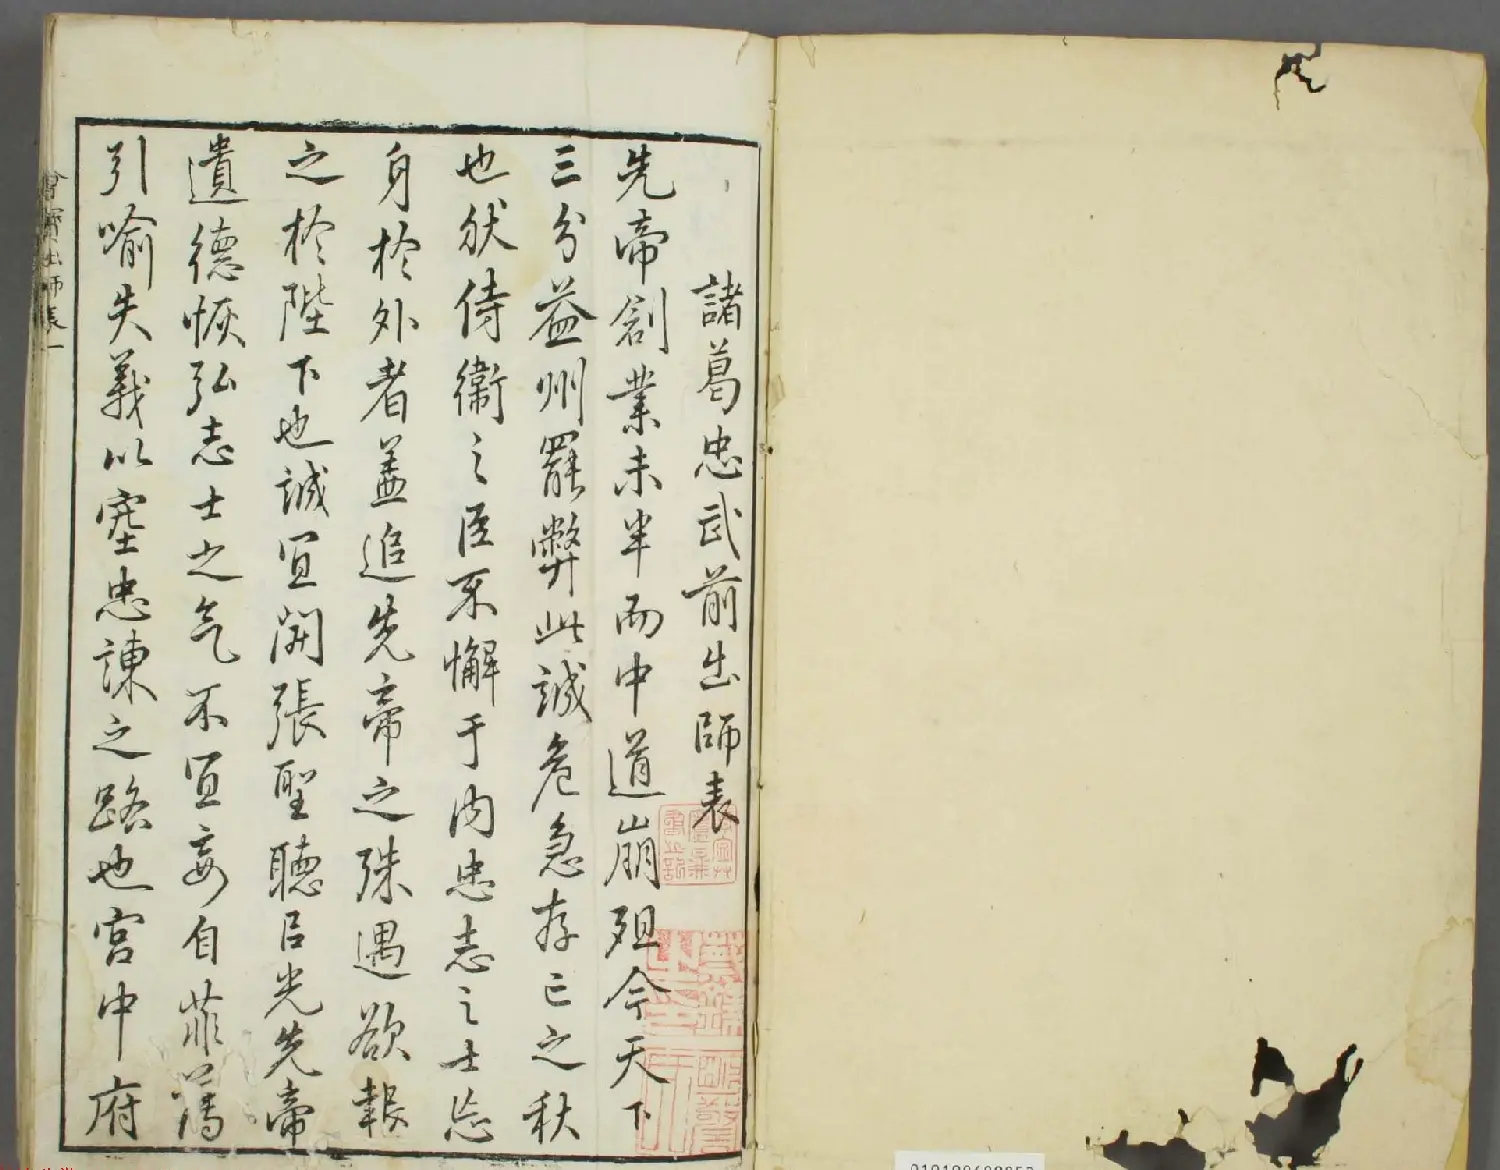 諸葛忠武前出師表
先帝創業未半而中道崩殂今天下
三分益州罷弊此誠危急存亡之秋
也然侍衛之臣不懈于内忠志之士忘
身於外者蓋追先帝之殊遇欲報
之於陛下也誠宜開張聖聽以光先帝
遺德恢弘志士之气不宜妄自菲薄
引喻失義以塞忠諫之路也宮中府
出師表一